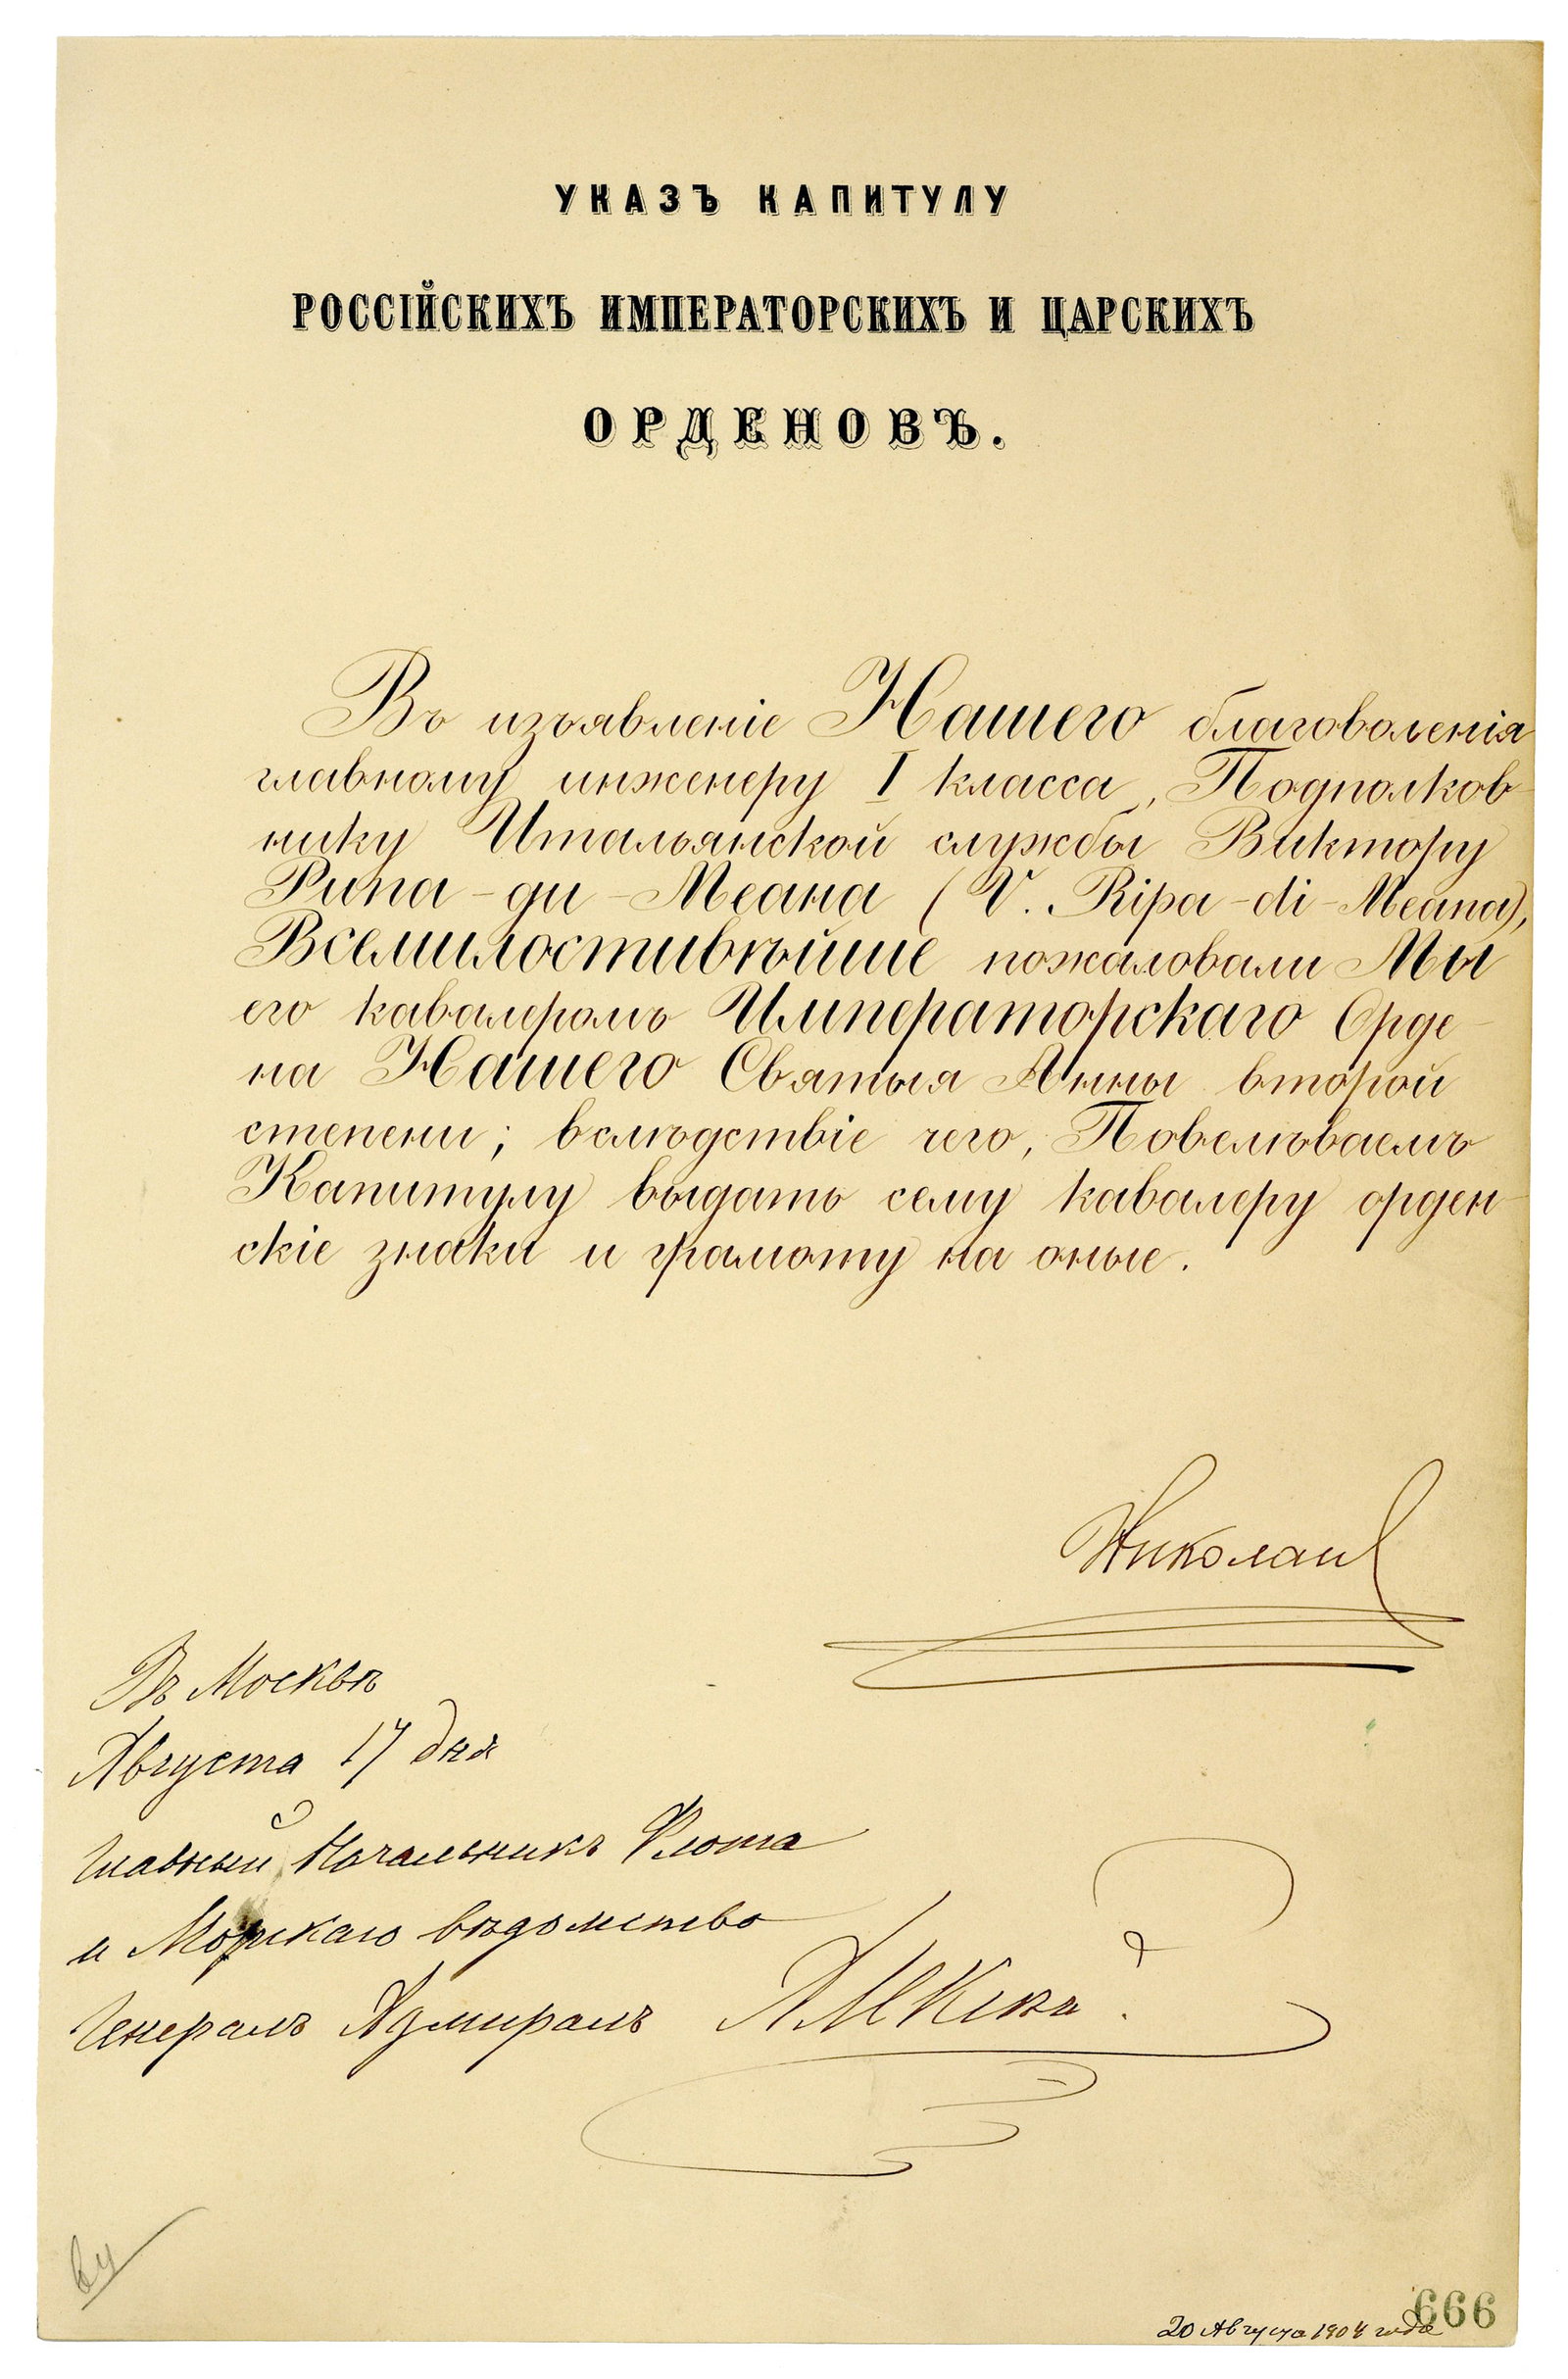 УКАЗЪ КАПИТУЛУ
РОССІЙСКИХЪ ИМПЕРАТОРСКИХЪ И ЦАРСКИХЪ
ОРДЕНОВЪ.
Въ изъявленіе Нашего благоволенія
главному инженеру I класса, Подполков-
нику Итальянской службы Виктору
Рипа-ди-Меана (V. Ripa-di-Meana),
Всемилостивѣйше пожаловали Мы
его кавалеромъ Императорскаго Орде-
на Нашего Святыя Анны второй
степени; вслѣдствіе чего, Повелѣваемъ
Капитулу выдать сему кавалеру орден-
скіе знаки и грамоту на оные.
Николай
Въ Москвѣ
Августа 17 дня
Главный Начальникъ Флота
и Морскаго вѣдомства
Генералъ Адмиралъ
666
20 Августа 1904 года